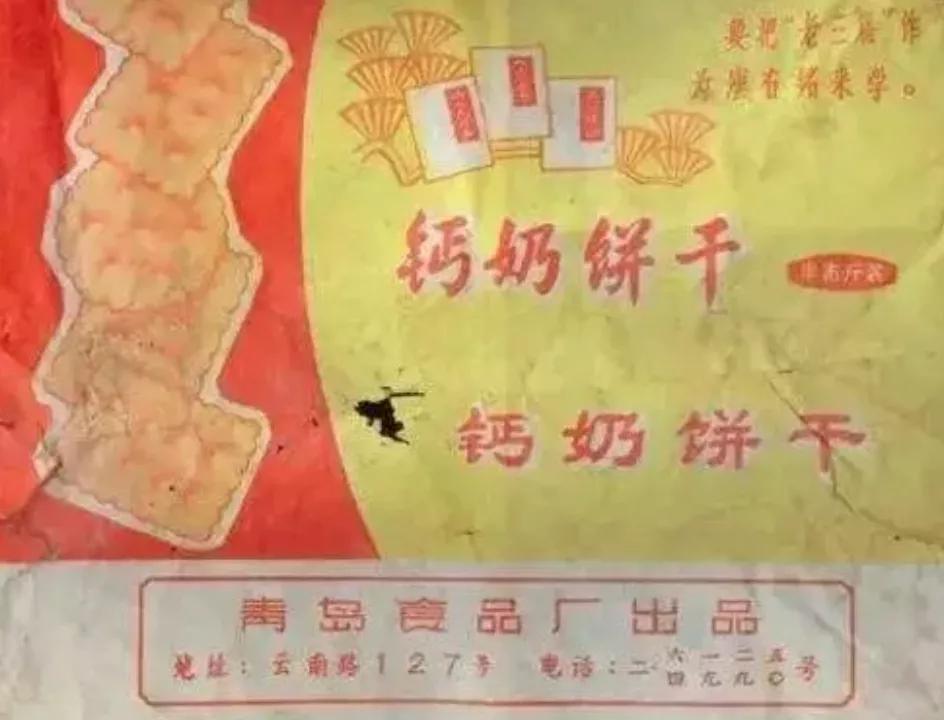 要把“老三篇”作
为座右铭来学。
钙奶饼干
半市斤装
钙奶饼干
青岛食品厂出品
地址：云南路127号 电话：二·六一二五
四九九〇号